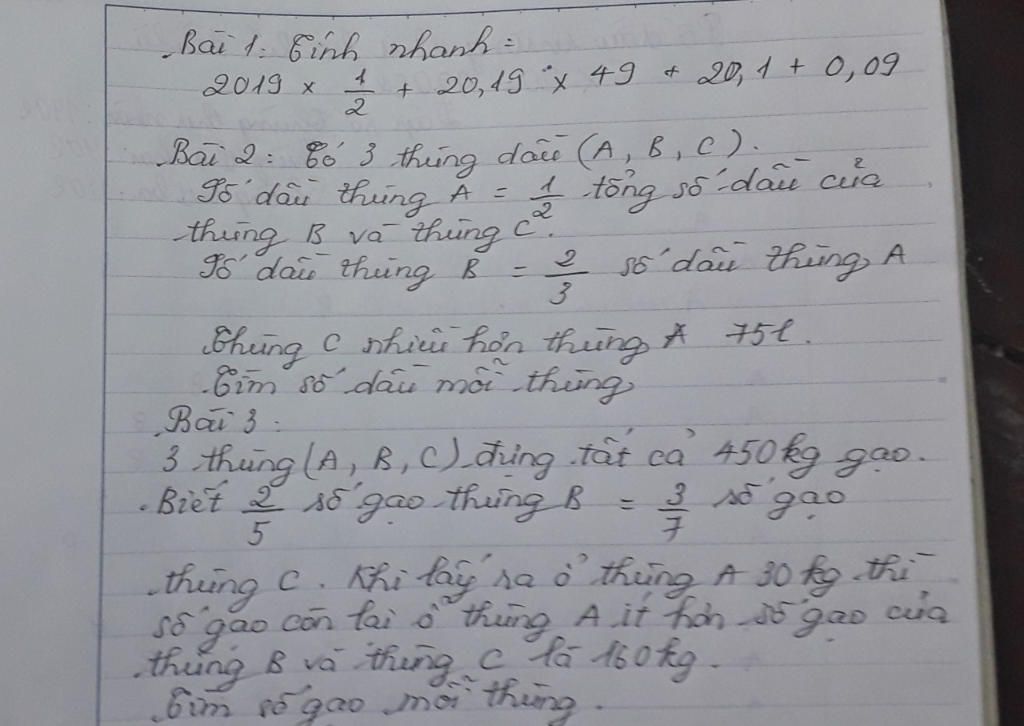 Bài 1: Tính nhanh:
2019 × 1/2 + 20,19 × 49 + 20,1 + 0,09
Bài 2: Có 3 thùng dầu (A, B, C).
Số dầu thùng A = 1/2 tổng số dầu của
thùng B và thùng C.
Số dầu thùng B = 2/3 số dầu thùng A
Thùng C nhiều hơn thùng A 75l.
Tìm số dầu mỗi thùng
Bài 3:
3 thùng (A, B, C) đựng tất cả 450kg gạo.
Biết 2/5 số gạo thùng B = 3/7 số gạo
thùng C. Khi lấy ra ở thùng A 30kg thì
số gạo còn lại ở thùng A ít hơn số gạo của
thùng B và thùng C là 160kg.
Tìm số gạo mỗi thùng.